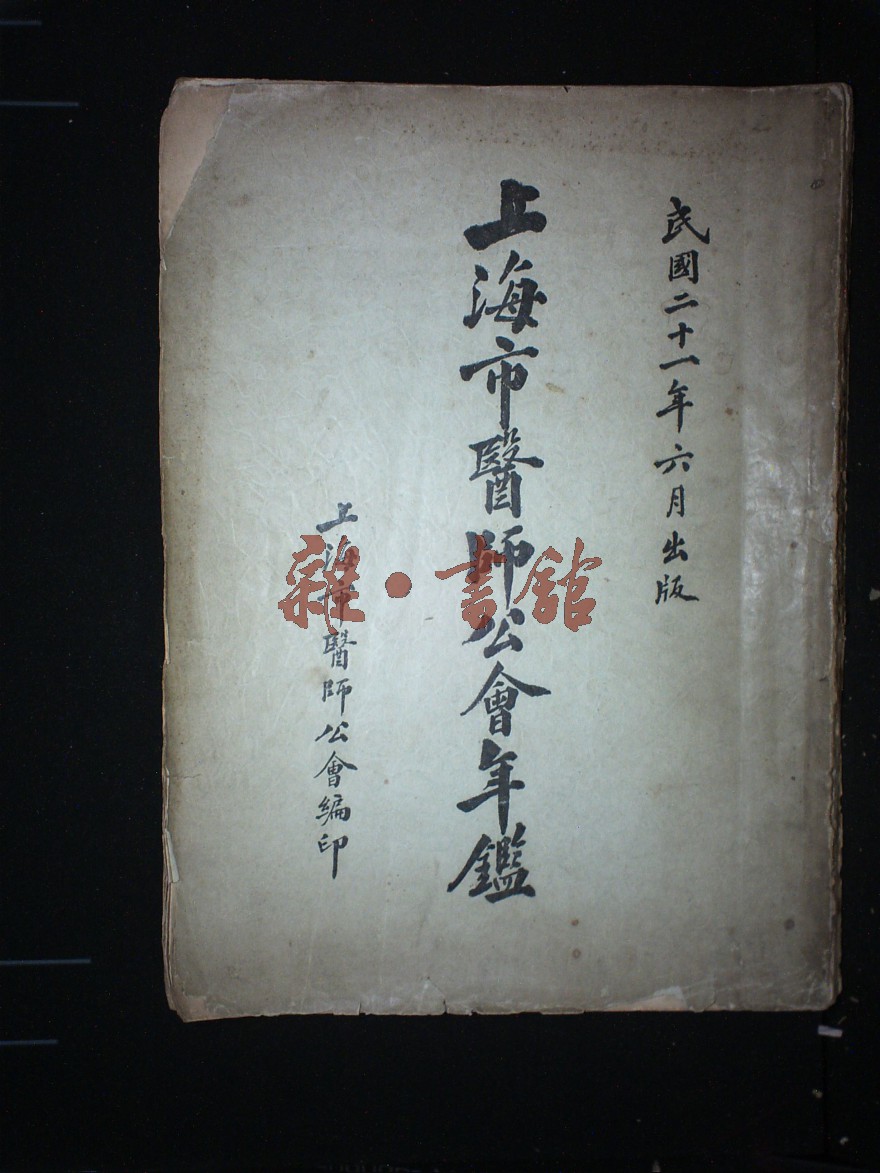 民國二十一年六月出版
上海市醫師公會年鑑
上海市醫師公會編印
雜·書館